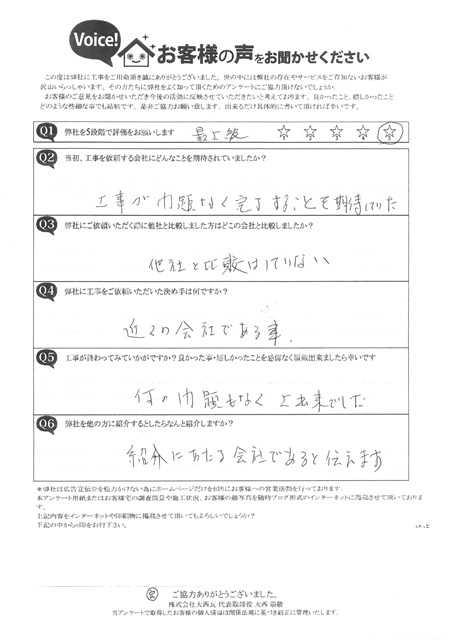 Voice!
お客様の声をお聞かせください
この度は弊社に工事をご用命頂き誠にありがとうございました。世の中には弊社の存在やサービスをご存知ないお客様が
沢山いらっしゃいます。その方たちに弊社をよく知って頂くためのアンケートにご協力頂けないでしょうか。
お客様のご意見をお聞かせいただき今後の活動に反映させていただきたいと考えております。良かったこと、嬉しかったこと
どのような些細な事でも結構です。是非ご協力お願い致します。出来るだけ具体的に書いて頂ければ幸いです。
Q1 弊社を5段階で評価をお願いします 最上級 ☆ ☆ ☆ ☆ ☆
Q2 当初、工事を依頼する会社にどんなことを期待されていましたか?
工事が問題なく完了することを期待していた
Q3 弊社にご依頼いただく際に他社と比較しました方はどこの会社と比較しましたか?
他社と比較はしていない
Q4 弊社に工事をご依頼いただいた決め手は何ですか?
近くの会社である事.
Q5 工事が終わってみていかがですか?良かった事・嬉しかったことを忌憚なく頂戴出来ましたら幸いです
何の問題もなく上出来でした
Q6 弊社を他の方に紹介するとしたらなんと紹介しますか?
紹介にあたる会社であると伝えます
*弊社は広告宣伝費を極力かけない為にホームページだけを頼りにお客様への営業活動を行っております。
本アンケート用紙またはお客様宅の調査質量や施工状況、お客様の顔写真を随時ブログ形式のインターネットに掲載させて頂いております。
上記内容をインターネットや印刷物に掲載させて頂いてもよろしいでしょうか?
下記の中から○印をお付下さい。
ご協力ありがとうございました。
株式会社大西瓦 代表取締役 大西 瑞敬
当アンケートで取得したお客様の個人情報は関係法規に基づき厳正に管理いたします。